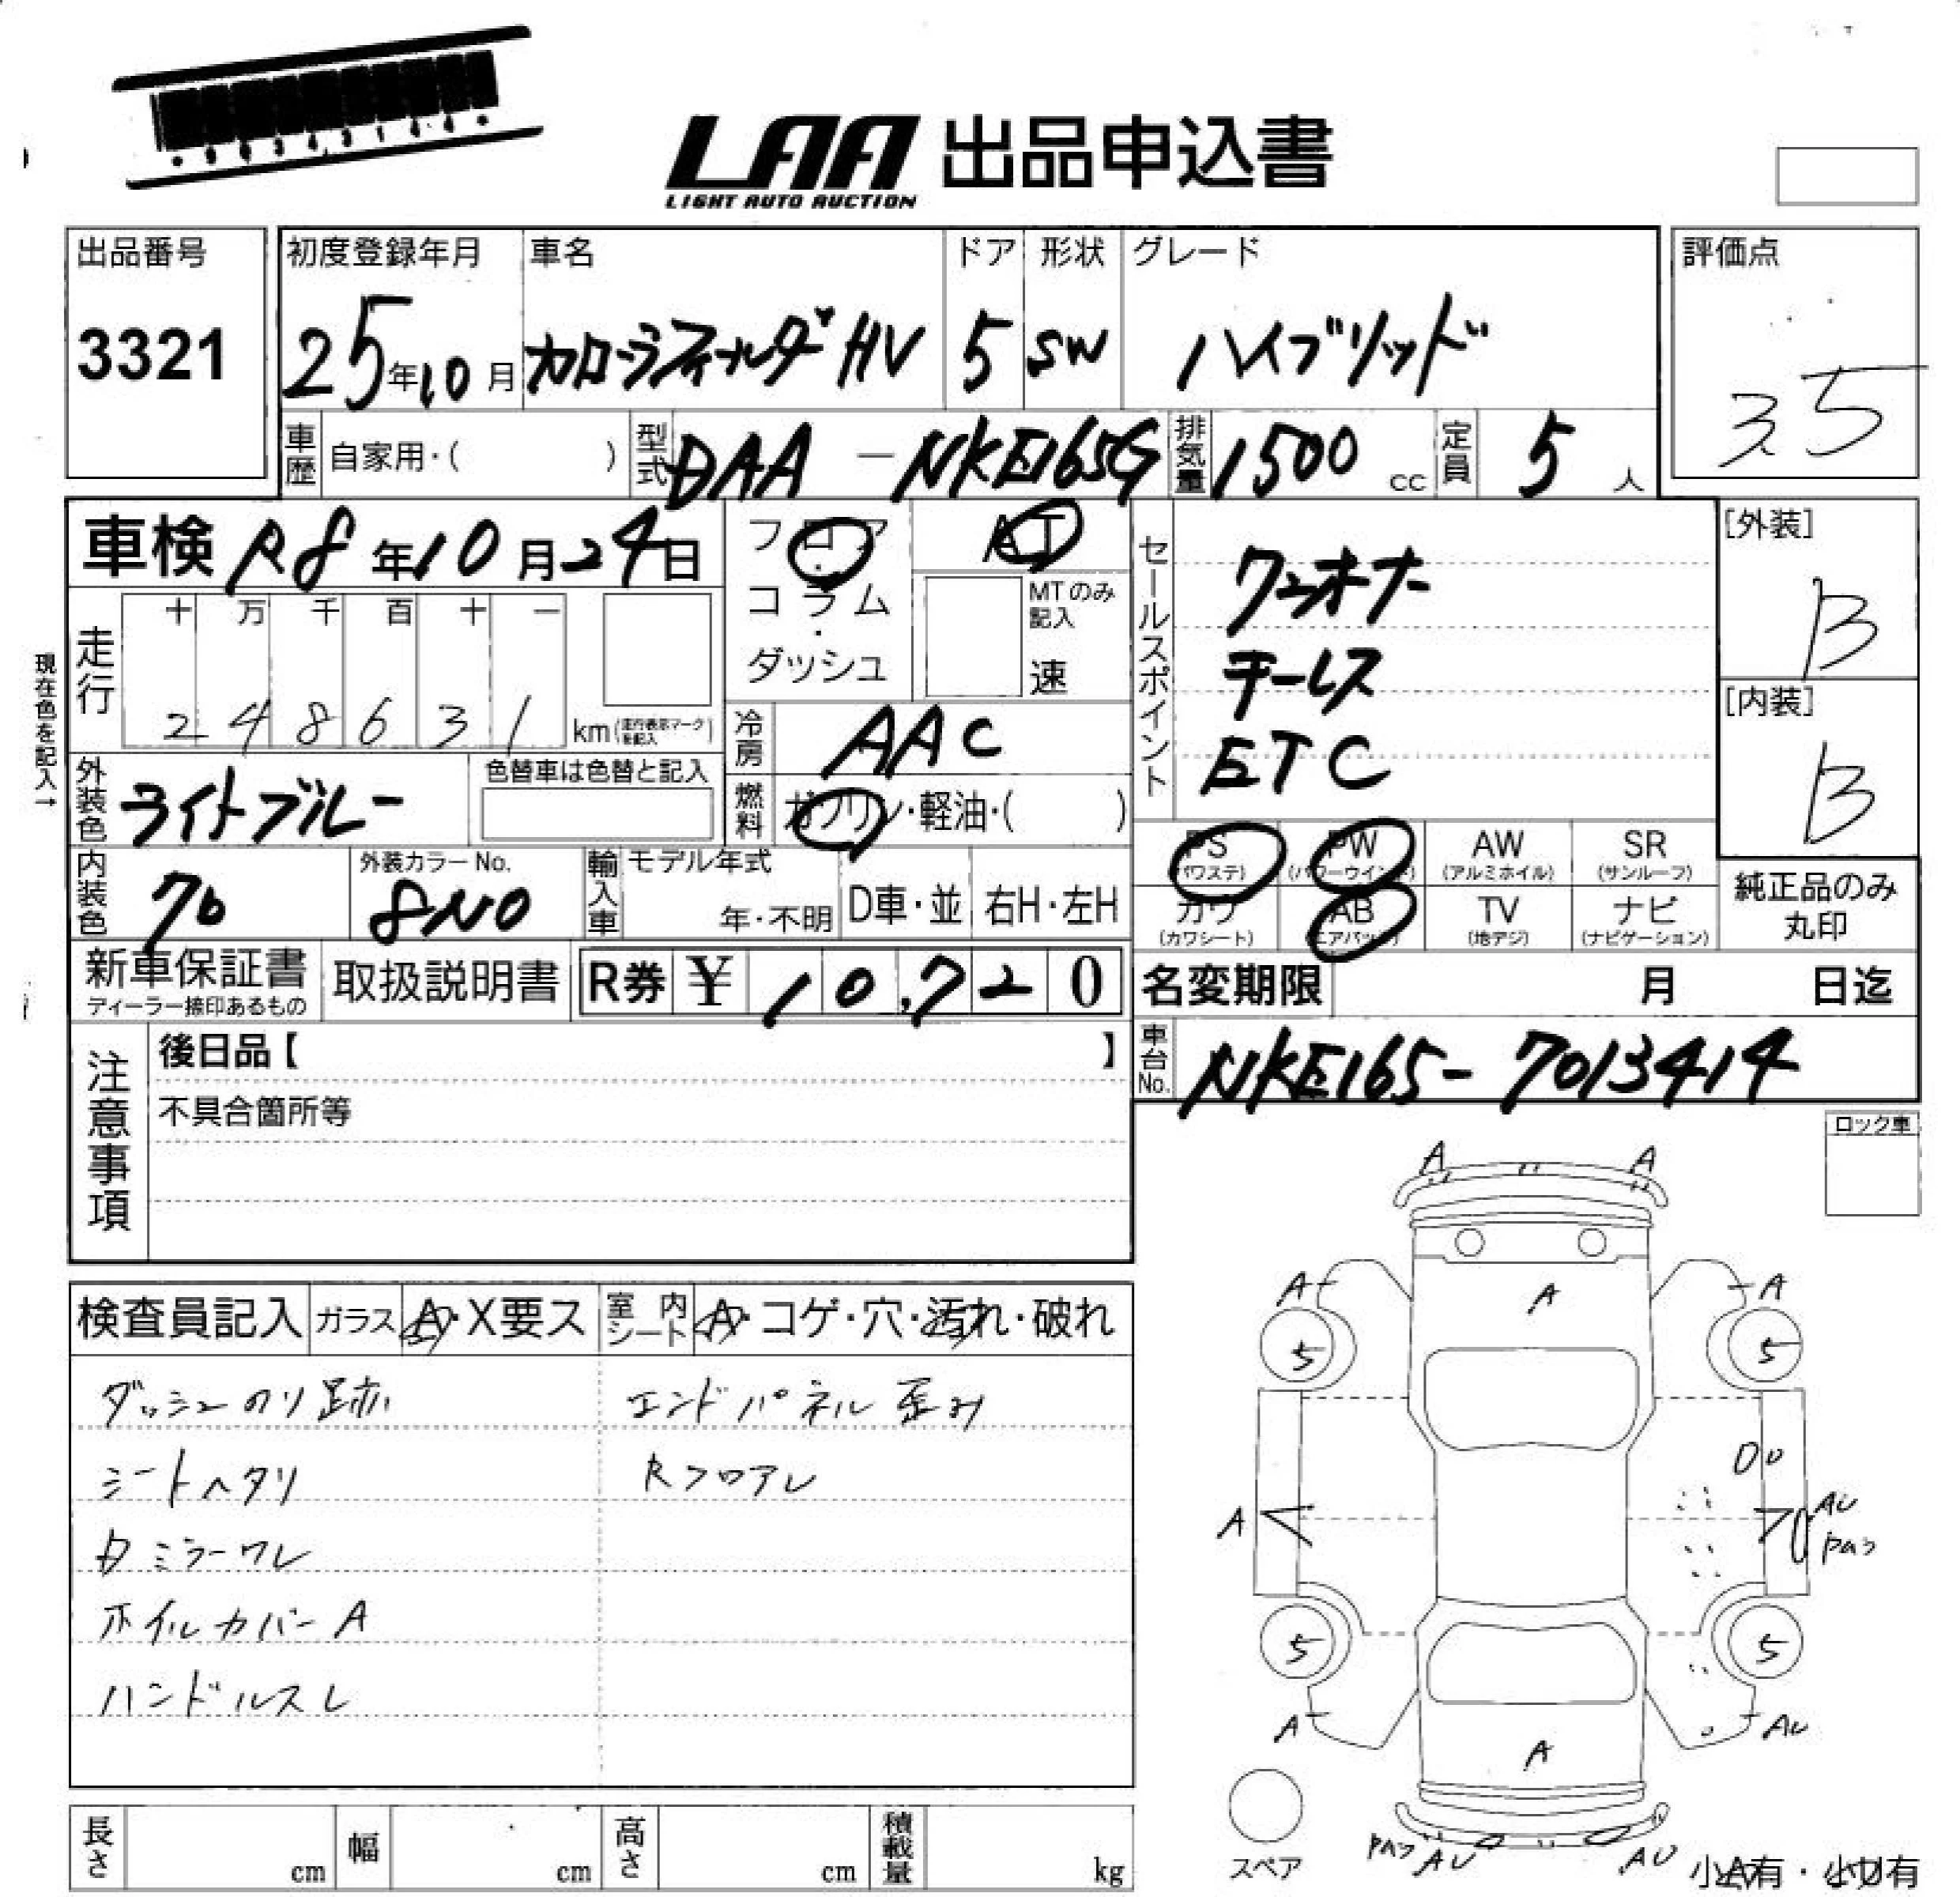 LAA 出品申込書
LIGHT AUTO AUCTION
出品番号
3321
初度登録年月
25年10月
車名
カローラフィールダーHV
ドア
5
形状
SW
グレード
ハイブリッド
評価点
3.5
車歴 自家用・( )
型式 DAA-NKE165G
排気量 1500 cc
定員 5 人
車検 R8年10月24日
フロア・コラム・ダッシュ
AT
MTのみ記入
速
セールスポイント
ワンオーナー
キーレス
ETC
[外装]
B
[内装]
B
現在色を記入→
走行
十 万 千 百 十 一
2 4 8 6 3 1 km (走行表示マークを記入)
冷房 AAC
外装色 ライトブルー
色替車は色替と記入
燃料 ガソリン・軽油・( )
内装色 70
外装カラーNo.
8N0
輸入車 モデル年式
年・不明
D車・並
右H・左H
PS (パワステ)
PW (パワーウインド)
AW (アルミホイル)
SR (サンルーフ)
カワ (カワシート)
AB (エアバック)
TV (地デジ)
ナビ (ナビゲーション)
純正品のみ丸印
新車保証書
ディーラー捺印あるもの
取扱説明書
R券 ¥ 10,720
名変期限 月 日迄
注意事項
後日品【 】
不具合箇所等
車台No. NKE165-7013414
ロック車
検査員記入
ガラス A・X要ス
室内シート A・コゲ・穴・汚れ・破れ
ダッシュのり跡
シートヘタリ
ミラーワレ
ホイルカバーA
ハンドルスレ
エンドパネル歪み
RフロアM
A A
A A
A
5 5
Do
A
AU
5 5
A
AU
A
AU
AU
スペア
小A有・小U有
長さ cm
幅 cm
高さ cm
積載量 kg